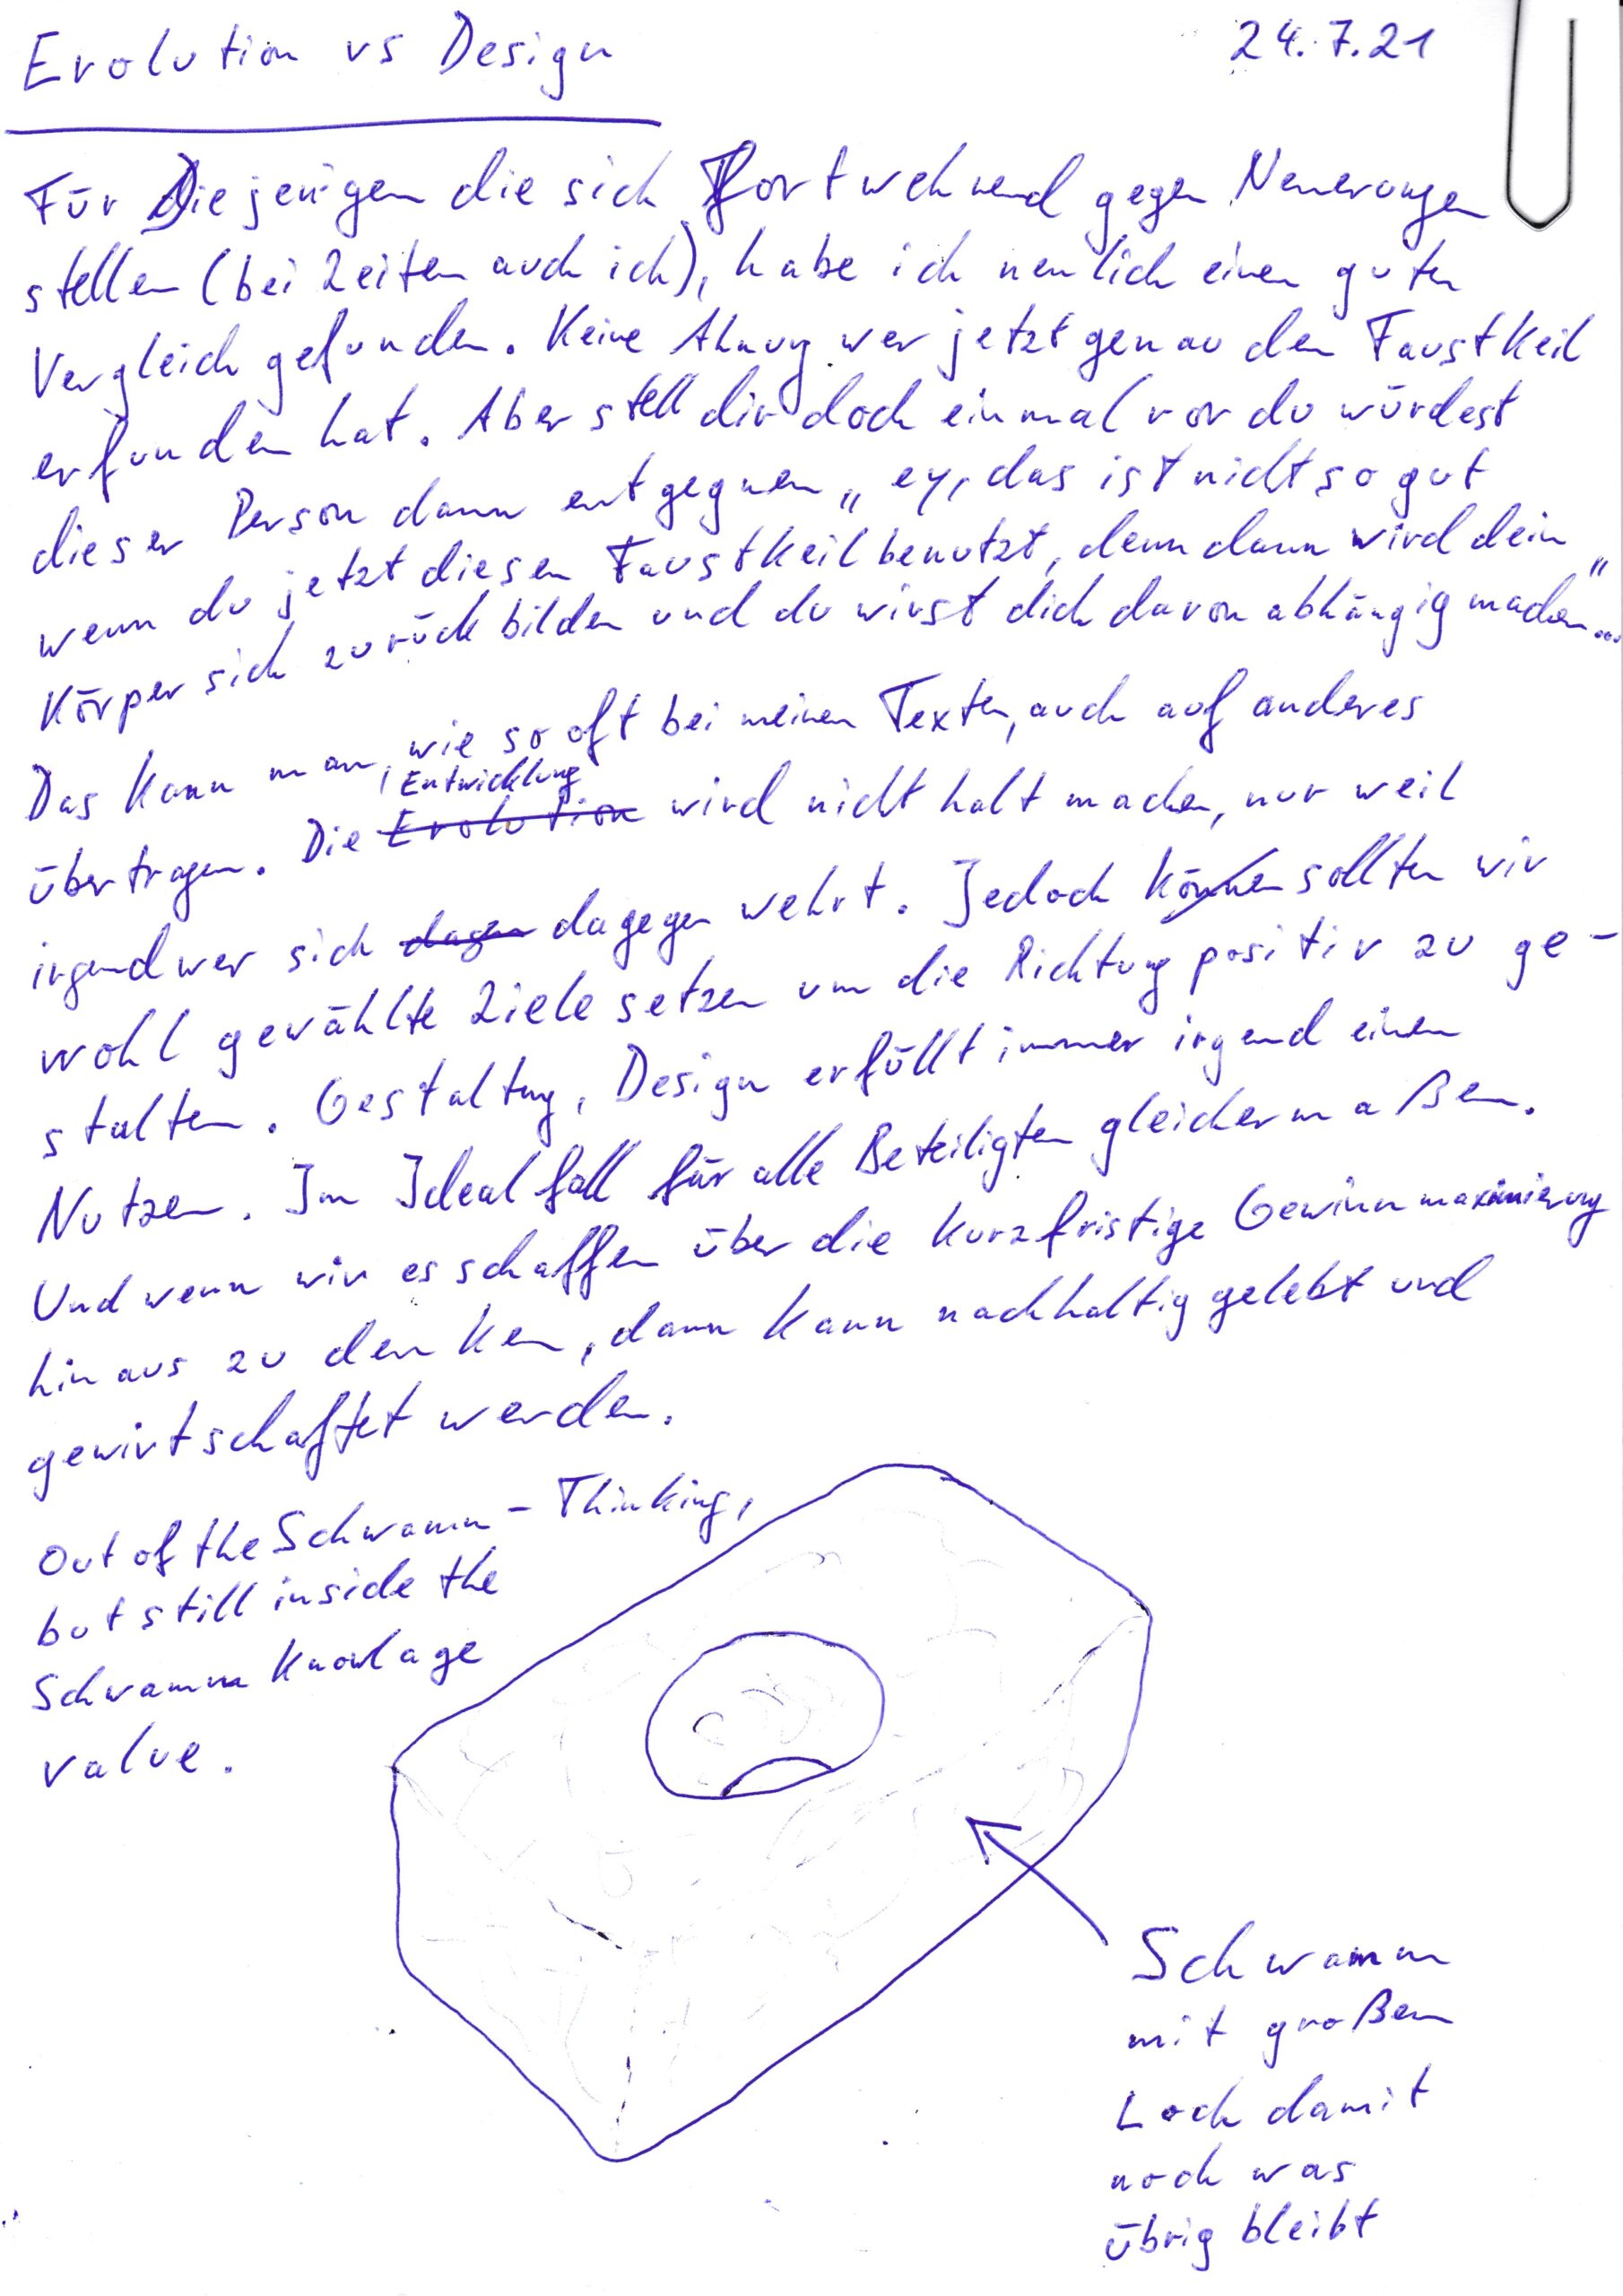 Evolution vs Design
24.7.21
Für Diejenigen die sich Fortwehrend gegen Neuerungen
stellen (bei Zeiten auch ich), habe ich neulich einen guten
Vergleich gefunden. Keine Ahnung wer jetzt genau den Faustkeil
erfunden hat. Aber stell dir doch einmal vor du würdest
dieser Person dann entgegnen „ey, das ist nicht so gut
wenn du jetzt diesen Faustkeil benutzt, denn dann wird dein
Körper sich zurück bilden und du wirst dich davon abhängig machen..."
Das kann man, wie so oft bei meinen Texten, auch auf anderes
übertragen. Die Evolution Entwicklung wird nicht halt machen, nur weil
irgendwer sich dagen dagegen wehrt. Jedoch können sollten wir
wohl gewählte Ziele setzen um die Richtung positiv zu ge-
stalten. Gestaltung, Design erfüllt immer irgend einen
Nutzen. Im Idealfall für alle Beteiligten gleichermaßen.
Und wenn wir es schaffen über die kurzfristige Gewinnmaximierung
hinaus zu denken, dann kann nachhaltig gelebt und
gewirtschaftet werden.
Out of the Schwamm-Thinking,
but still inside the
Schwamm Knowlage
value.
Schwamm
mit großem
Loch damit
noch was
übrig bleibt